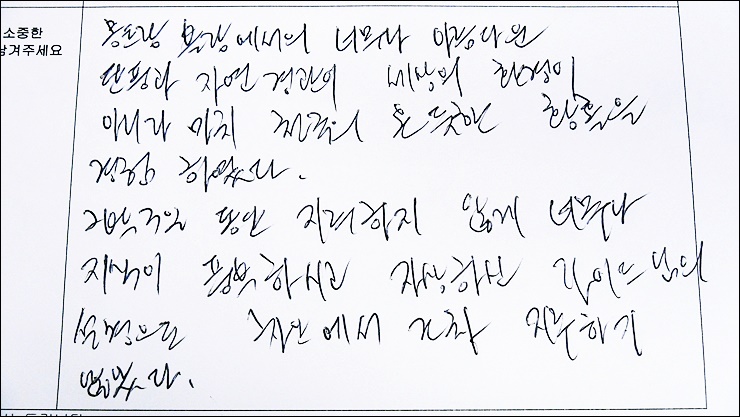 소중한
남겨주세요
몽트랑 블랑에서의 너무나 아름다운
단풍과 자연경관의 세상의 환경이
아니라 마치 천국의 온 듯한 황홀을
경험 하였다.
2박3일 동안 지루하지 않게 너무나
지식이 풍부하시고 자상하신 가이드님의
설명으로 차안에서 전혀 지루하지
않았다.